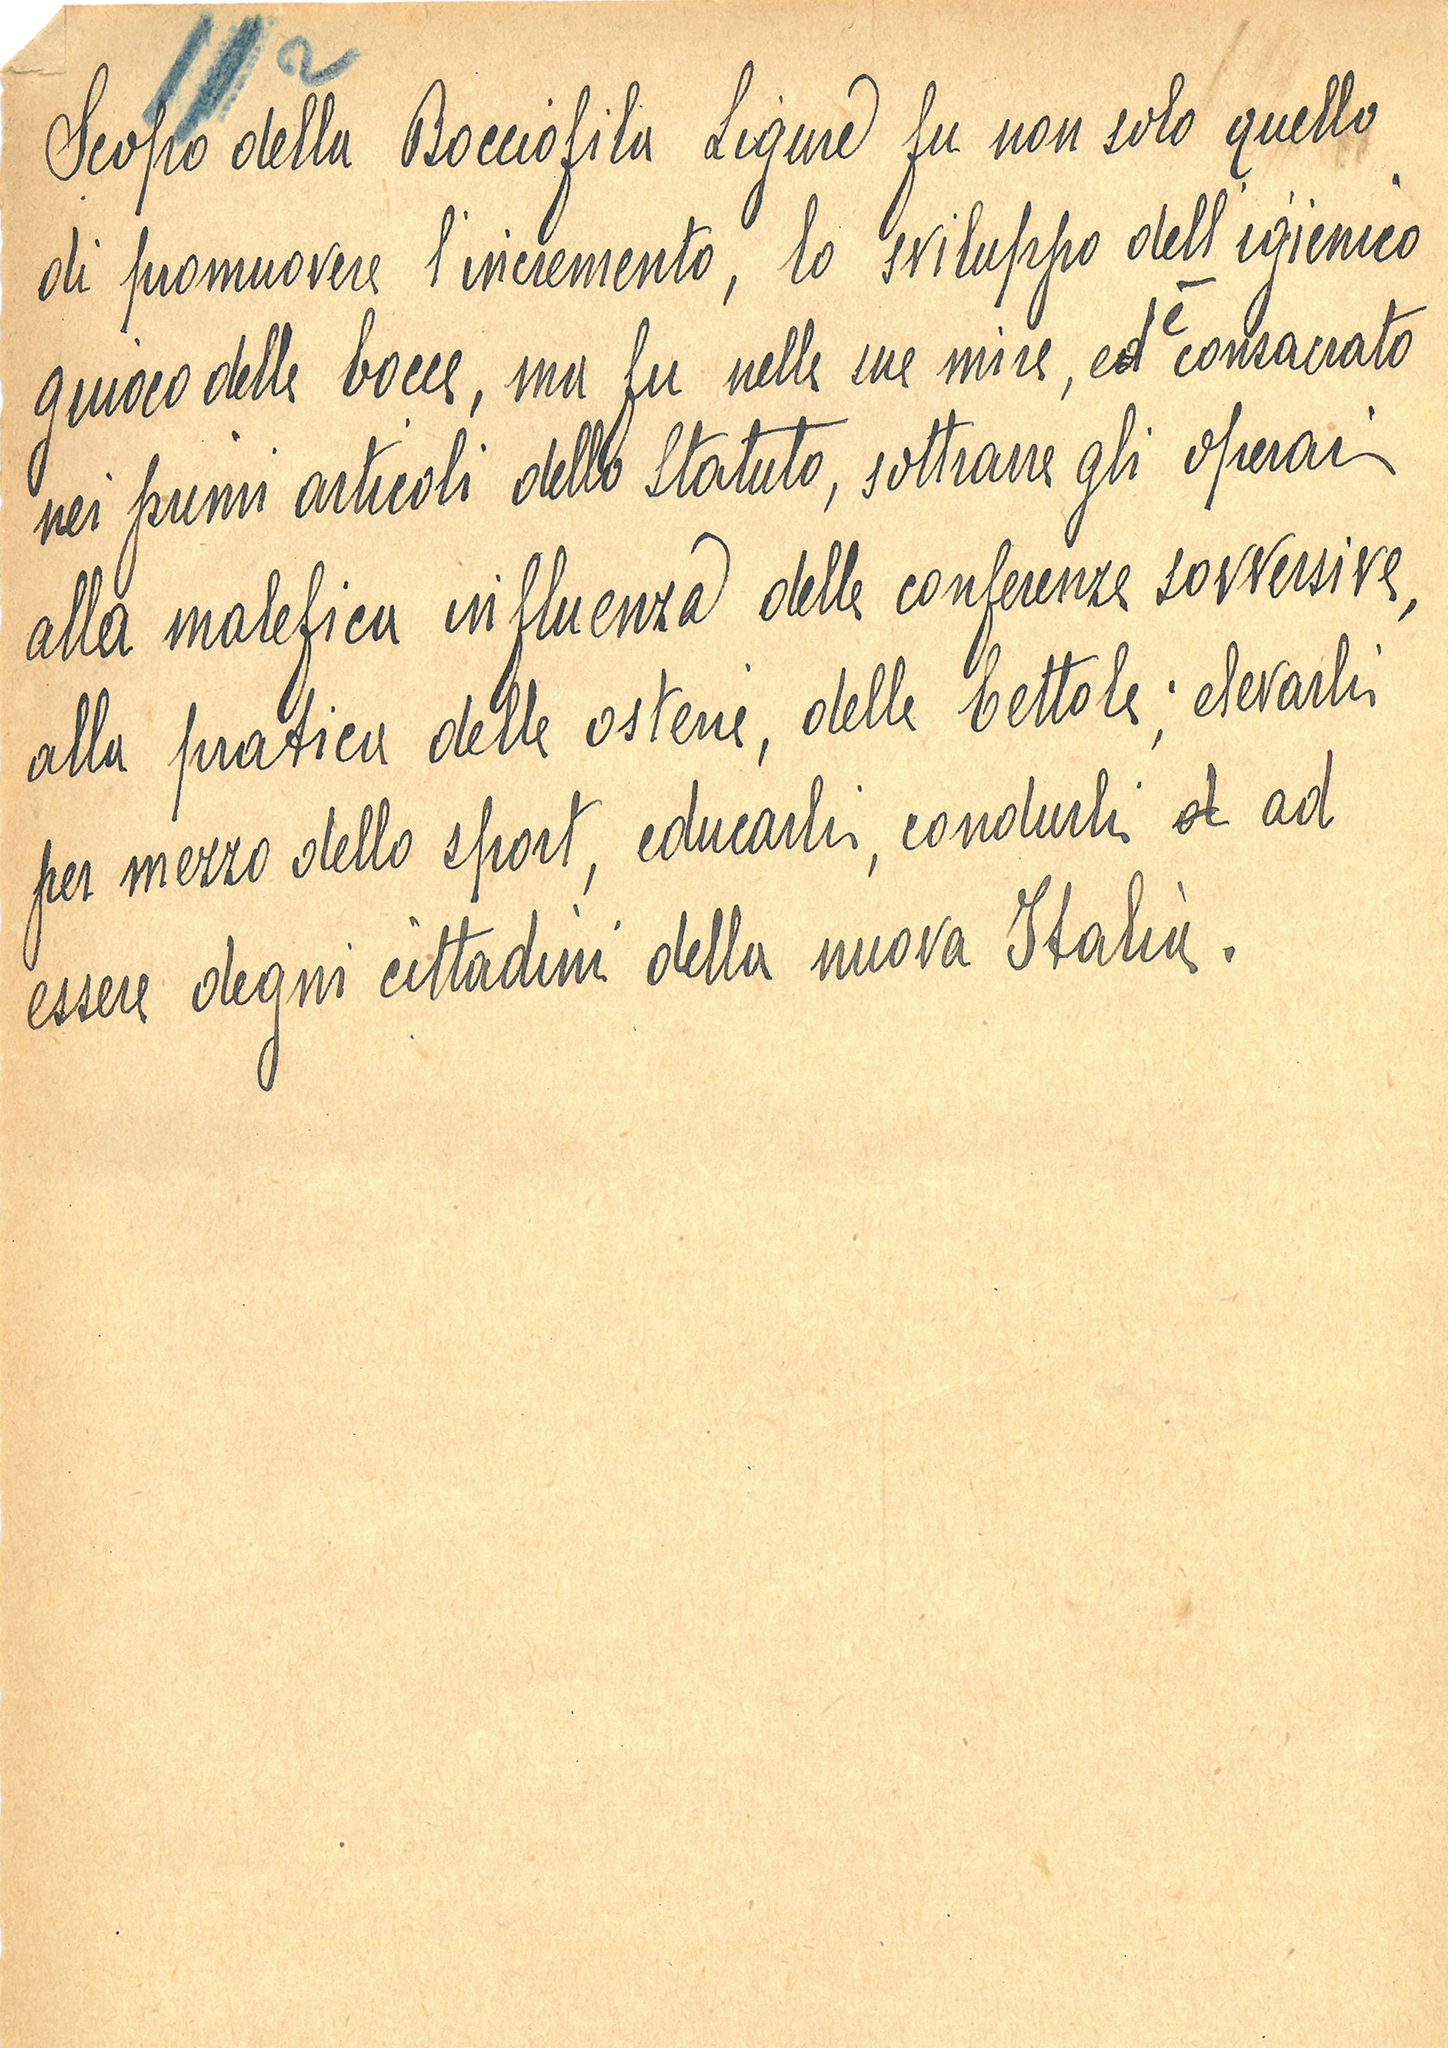 2
Scopo della Bocciofila Ligure fu non solo quello
di promuovere l'incremento, lo sviluppo dell'igienico
giuoco delle bocce, ma fu nelle sue mire, ed è consacrato
nei primi articoli dello Statuto, sottrarre gli operai
alla malefica influenza delle conferenze sovversive,
alla pratica delle osterie, delle bettole; elevarli
per mezzo dello sport, educarli, condurli ad
essere degni cittadini della nuova Italia.